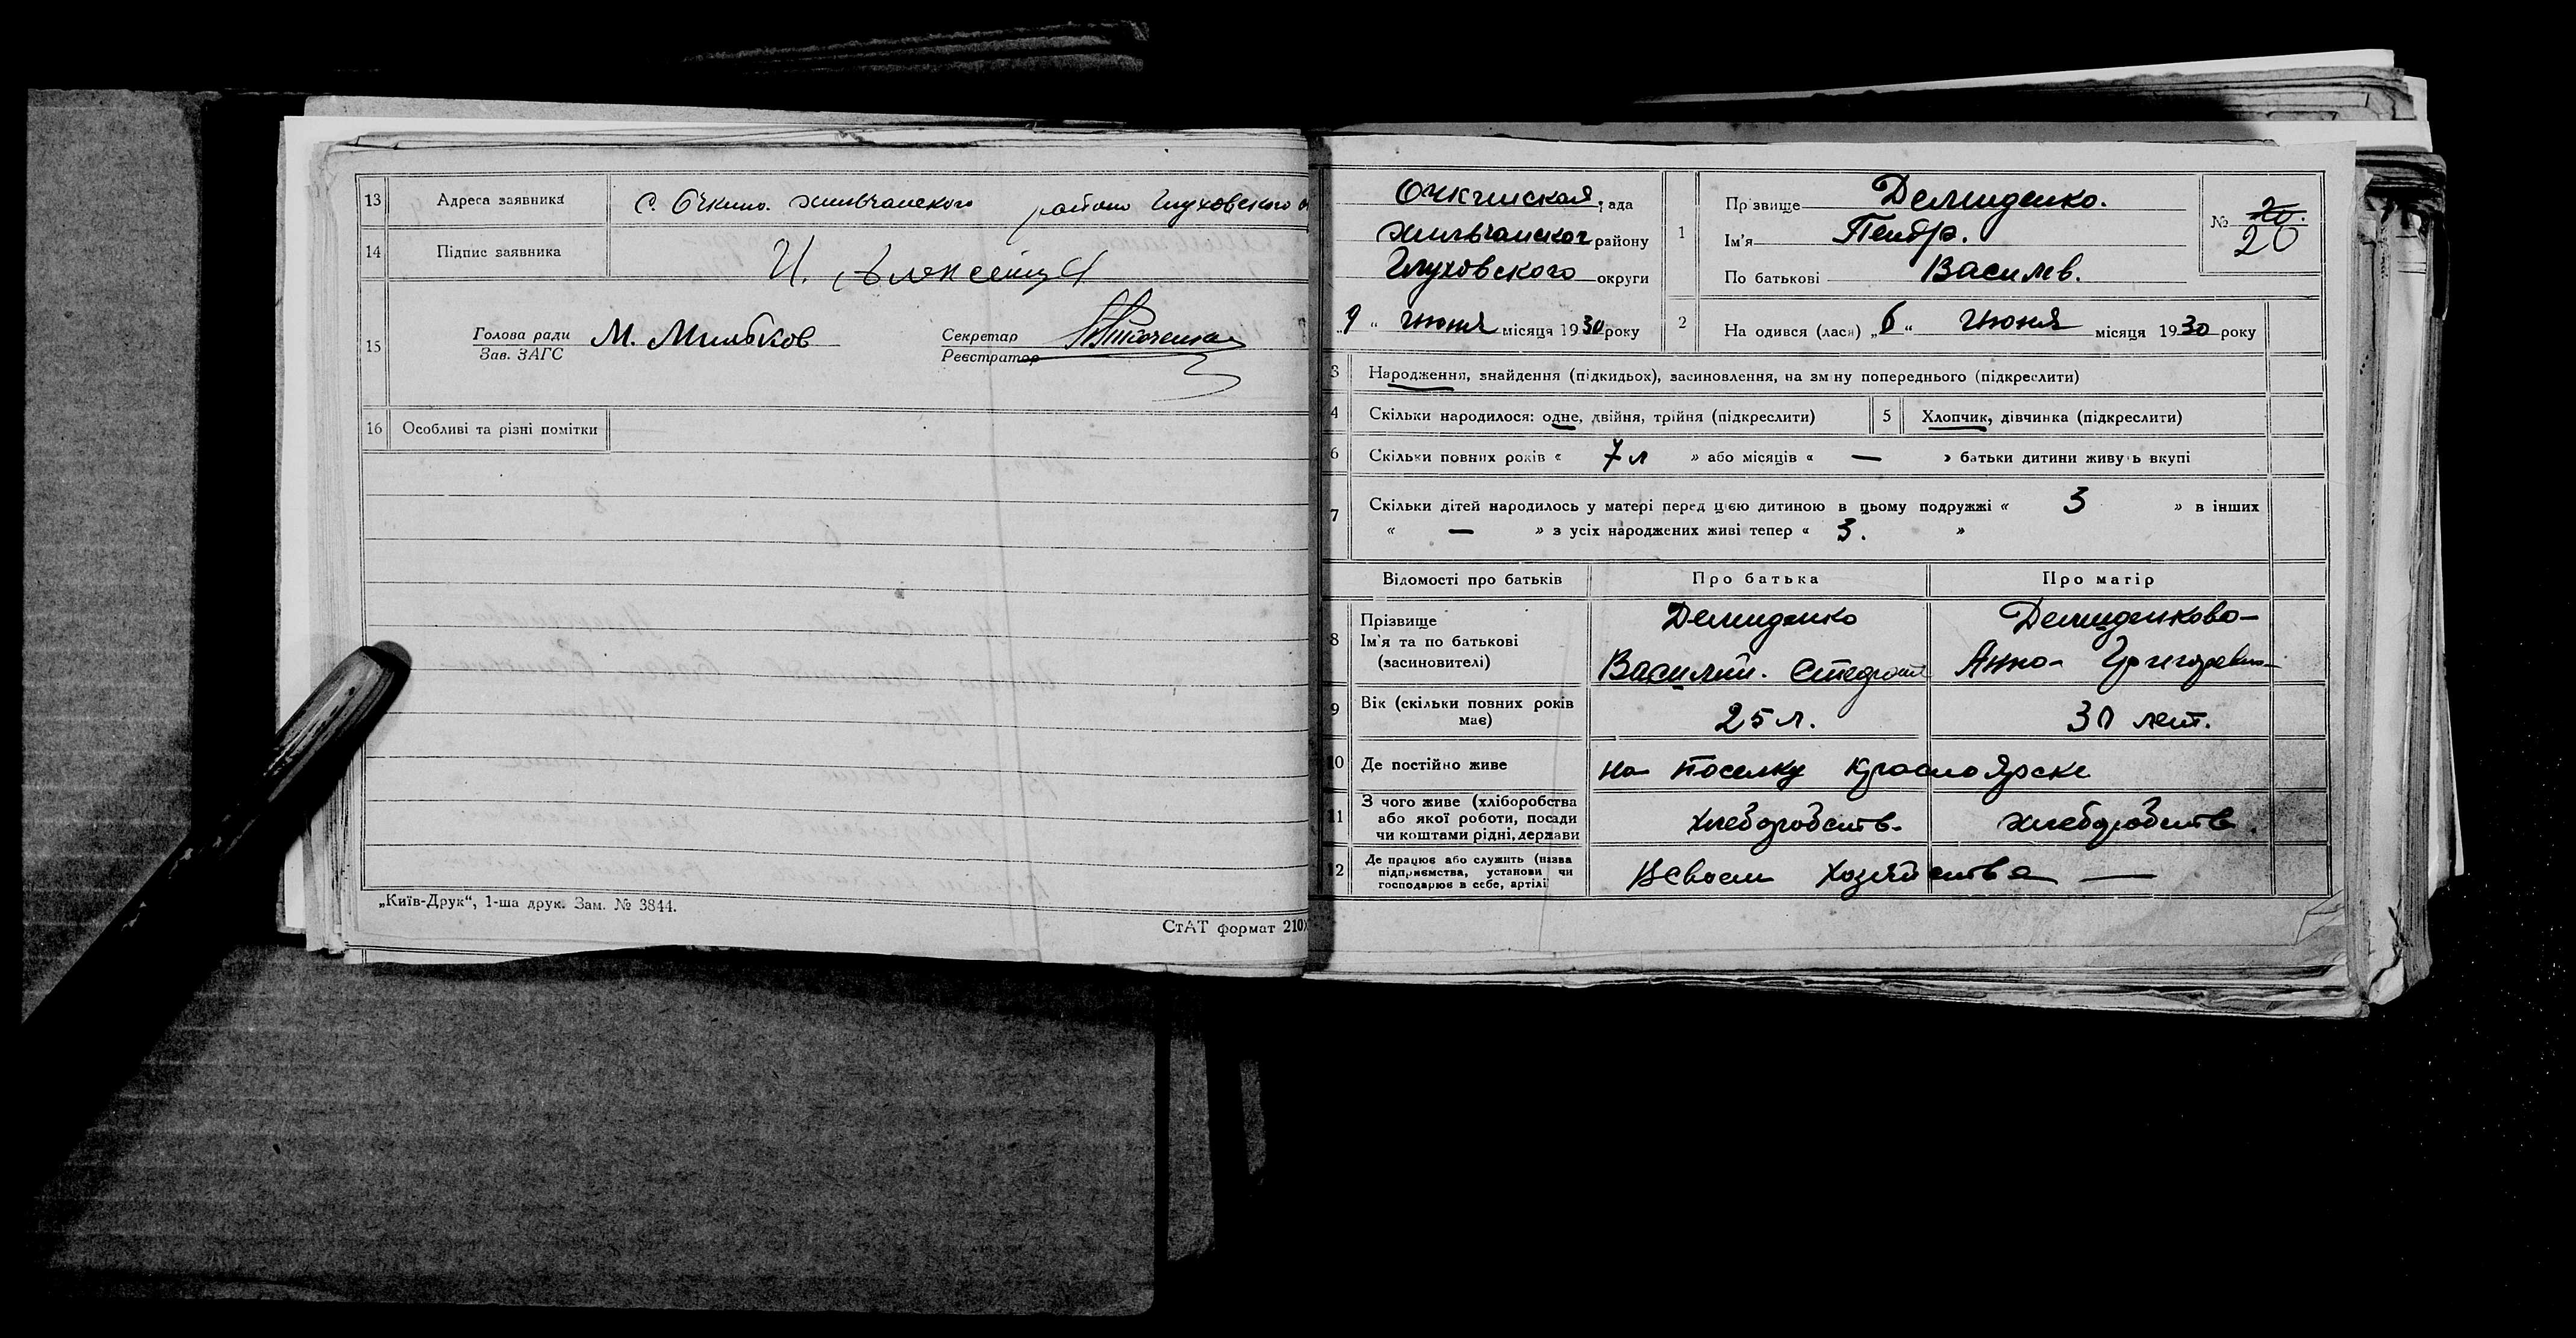 13 Адреса заявника с. Очкино. Хильчанского района Глуховского о
14 Підпис заявника И. Алексеица
15 Голова ради М. Мильков Секретар
Зав. ЗАГС Реєстратор
16 Особливі та різні помітки
„Київ-Друк“, 1-ша друк. Зам. № 3844.
СтАТ формат 210
Очкинская рада
Хильчанског району
Глуховского округи
„9“ июня місяця 1930 року
1 Прізвище Демиденко.
Ім'я Петр.
По батькові Василев.
№ 20.
20
2 Народився (лася) „6“ июня місяця 1930 року
3 Народження, знайдення (підкидьок), засиновлення, на зміну попереднього (підкреслити)
4 Скільки народилося: одне, двійня, трійня (підкреслити) 5 Хлопчик, дівчинка (підкреслити)
6 Скільки повних років « 7 л » або місяців « — » батьки дитини живуть вкупі
7 Скільки дітей народилось у матері перед цією дитиною в цьому подружжі « 3 » в інших
« — » з усіх народжених живі тепер « 3. »
Відомості про батьків Про батька Про матір
8 Прізвище Демиденко Демиденкова
Ім'я та по батькові
(засиновителі) Василий. Анна Григоревна
9 Вік (скільки повних років має) 25 л. 30 лет.
10 Де постійно живе на поселку Красноярске
11 З чого живе (хліборобства
або якої роботи, посади
чи коштами рідні, держави хлеборобств. хлеборобств.
12 Де працює або служить (назва
підприємства, установи чи
господарює в себе, артілі В своем хозяйства —